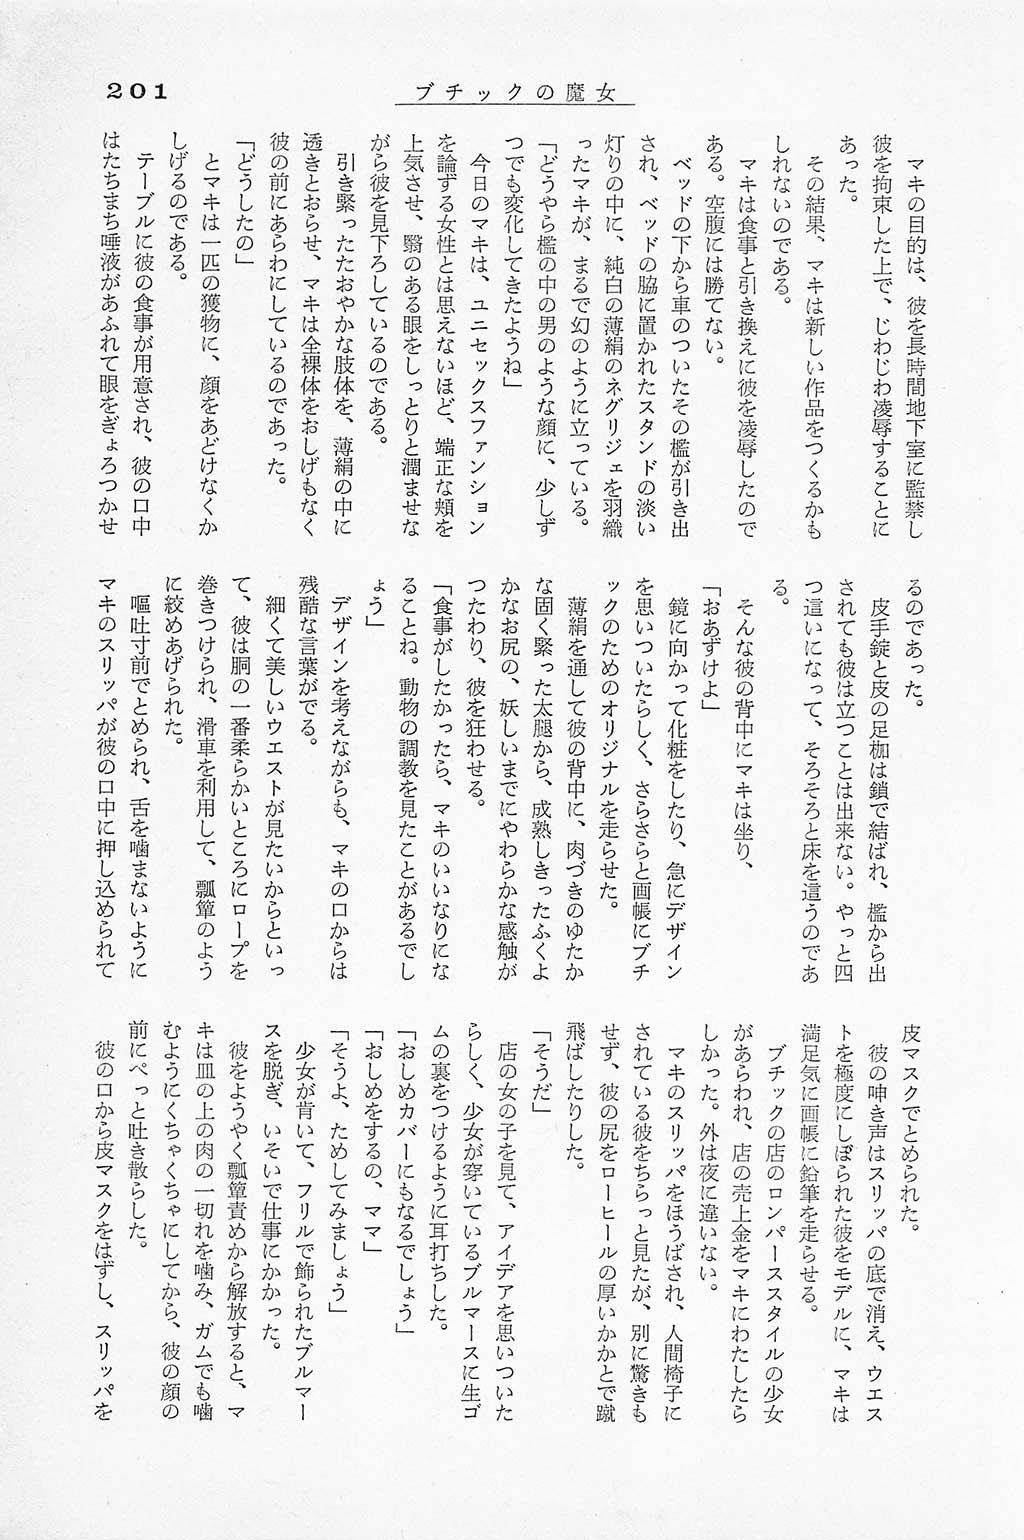 201
ブチックの魔女
マキの目的は、彼を長時間地下室に監禁し
彼を拘束した上で、じわじわ凌辱することに
あった。
その結果、マキは新しい作品をつくるかも
しれないのである。
マキは食事と引き換えに彼を凌辱したので
ある。空腹には勝てない。
ベッドの下から車のついたその檻が引き出
され、ベッドの脇に置かれたスタンドの淡い
灯りの中に、純白の薄絹のネグリジェを羽織
ったマキが、まるで幻のように立っている。
「どうやら檻の中の男のような顔に、少しず
つでも変化してきたようね」
今日のマキは、ユニセックスファンション
を論ずる女性とは思えないほど、端正な頬を
上気させ、翳のある眼をしっとりと潤ませな
がら彼を見下ろしているのである。
引き緊ったたおやかな肢体を、薄絹の中に
透きとおらせ、マキは全裸体をおしげもなく
彼の前にあらわにしているのであった。
「どうしたの」
とマキは一匹の獲物に、顔をあどけなくか
しげるのである。
テーブルに彼の食事が用意され、彼の口中
はたちまち唾液があふれて眼をぎょろつかせ
るのであった。
皮手錠と皮の足枷は鎖で結ばれ、檻から出
されても彼は立つことは出来ない。やっと四
つ這いになって、そろそろと床を這うのであ
る。
そんな彼の背中にマキは坐り、
「おあずけよ」
鏡に向かって化粧をしたり、急にデザイン
を思いついたらしく、さらさらと画帳にブチ
ックのためのオリジナルを走らせた。
薄絹を通して彼の背中に、肉づきのゆたか
な固く緊った太腿から、成熟しきったふくよ
かなお尻の、妖しいまでにやわらかな感触が
つたわり、彼を狂わせる。
「食事がしたかったら、マキのいいなりにな
ることね。動物の調教を見たことがあるでし
ょう」
デザインを考えながらも、マキの口からは
残酷な言葉がでる。
細くて美しいウエストが見たいからといっ
て、彼は胴の一番柔らかいところにロープを
巻きつけられ、滑車を利用して、瓢箪のよう
に絞めあげられた。
嘔吐寸前でとめられ、舌を噛まないように
マキのスリッパが彼の口中に押し込められて
皮マスクでとめられた。
彼の呻き声はスリッパの底で消え、ウエス
トを極度にしぼられた彼をモデルに、マキは
満足気に画帳に鉛筆を走らせる。
ブチックの店のロンパーススタイルの少女
があらわれ、店の売上金をマキにわたしたら
しかった。外は夜に違いない。
マキのスリッパをほうばされ、人間椅子に
されている彼をちらっと見たが、別に驚きも
せず、彼の尻をローヒールの厚いかかとで蹴
飛ばしたりした。
「そうだ」
店の女の子を見て、アイデアを思いついた
らしく、少女が穿いているブルマースに生ゴ
ムの裏をつけるように耳打ちした。
「おしめカバーにもなるでしょう」
「おしめをするの、ママ」
「そうよ、ためしてみましょう」
少女が肯いて、フリルで飾られたブルマー
スを脱ぎ、いそいで仕事にかかった。
彼をようやく瓢箪責めから解放すると、マ
キは皿の上の肉の一切れを噛み、ガムでも噛
むようにくちゃくちゃにしてから、彼の顔の
前にぺっと吐き散らした。
彼の口から皮マスクをはずし、スリッパを